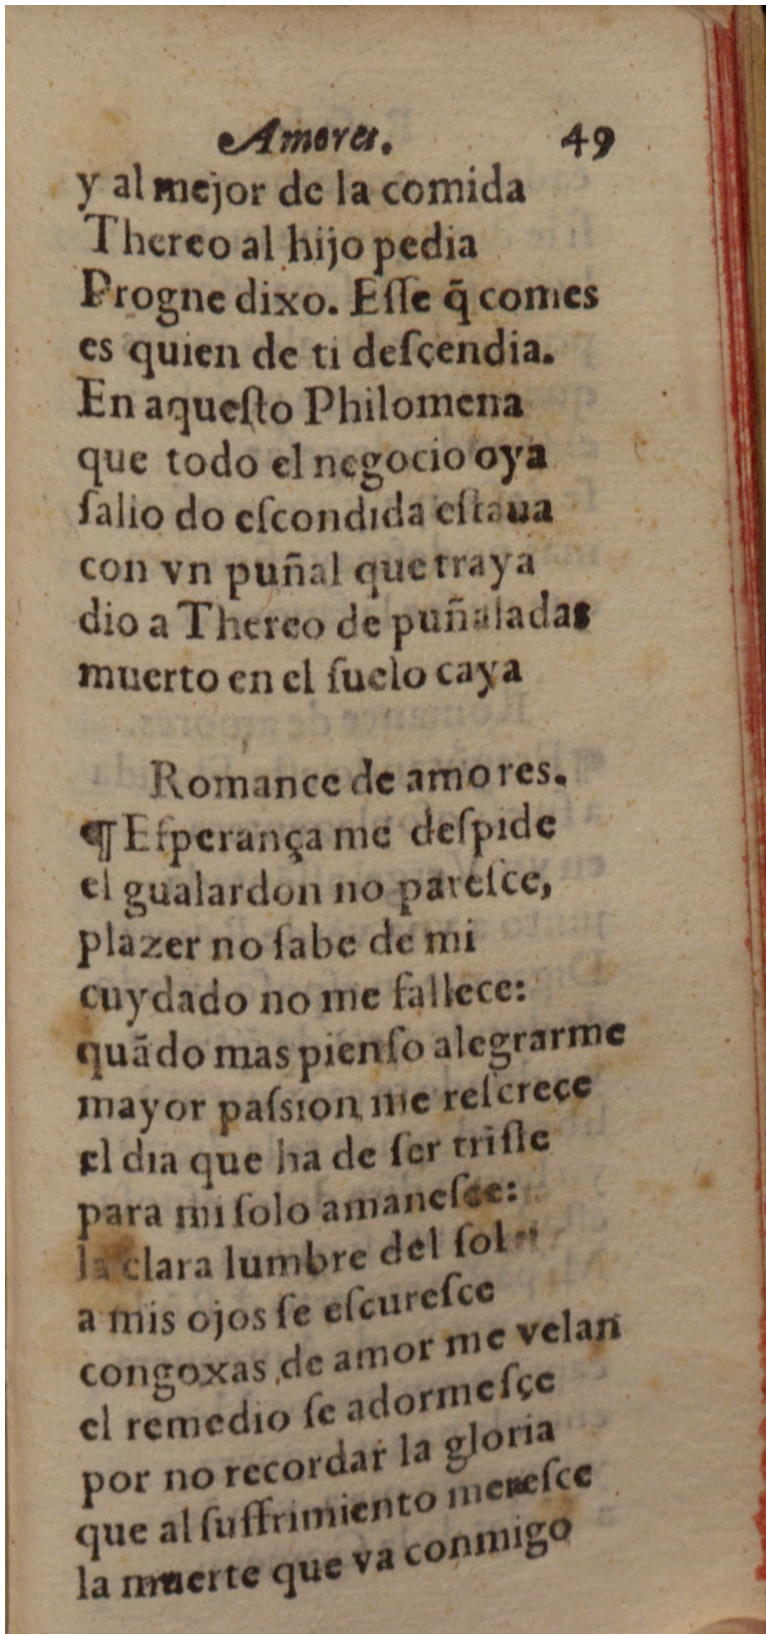 Amores. 49
y al mejor de la comida
Thereo al hijo pedia
Progne dixo. Eſſe q̄ comes
es quien de ti deſçendia.
En aqueſto Philomena
que todo el negocio oya
ſalio do eſcondida eſtaua
con vn puñal que traya
dio a Thereo de puñaladas
muerto en el ſuelo caya
Romance de amores.
¶ Eſperança me deſpide
el gualardon no pareſce,
plazer no ſabe de mi
cuydado no me fallece:
quãdo mas pienſo alegrarme
mayor paſsion me reſcreçe
el dia que ha de ſer triſte
para mi ſolo amaneſce:
la clara lumbre del ſol
a mis ojos ſe eſcureſce
congoxas de amor me velan
el remedio ſe adormeſçe
por no recordar la gloria
que al ſuffrimiento mereſce
la muerte que va conmigo